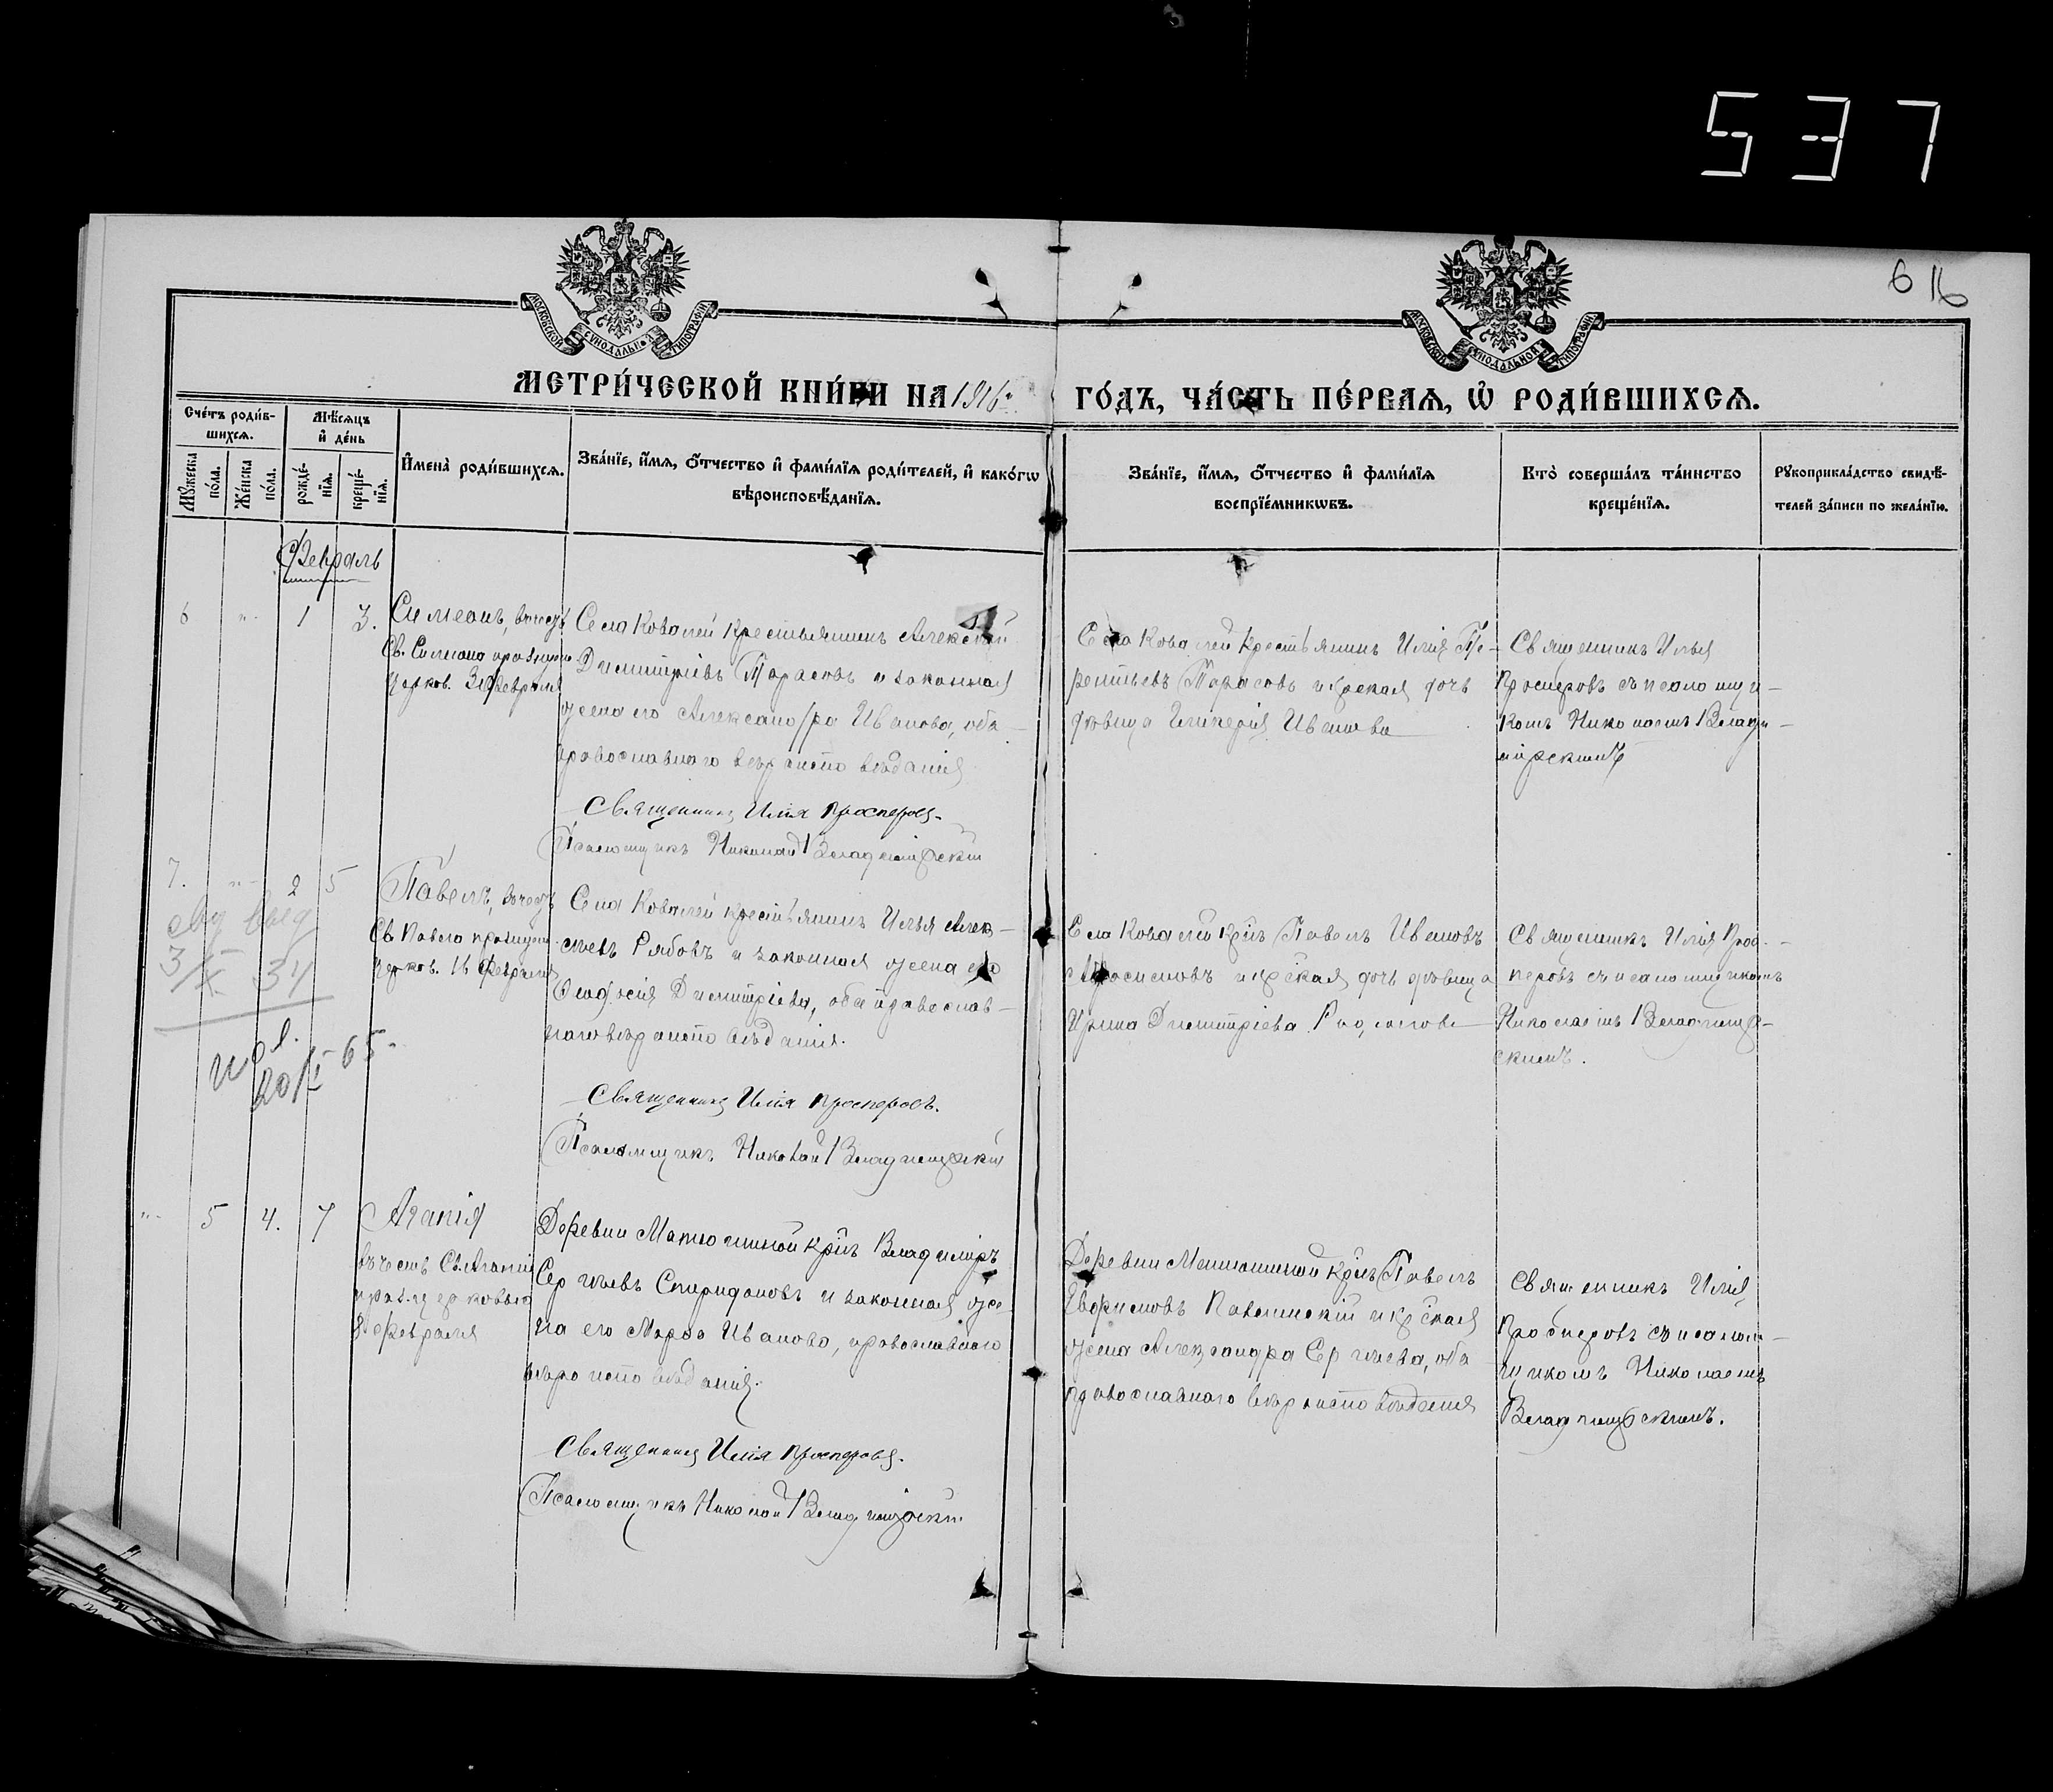 537
6 16
МОСКОВСКОЙ СѴНОДАЛЬНОЙ ТИПОГРАФІИ
МОСКОВСКОЙ СѴНОДАЛЬНОЙ ТИПОГРАФІИ
МЕТРИ́ЧЕСКОЙ КНИ́ГИ НА 1916 ГО́ДЪ, ЧА́СТЬ ПЕ́РВАѦ, Ѡ҆ РОДИ́ВШИХСѦ.
Сче́тъ роди́в-
шихсѧ.
Мѣ́сѧцъ
и҆ де́нь
Мꙋ́жеска
по́ла.
Же́нска
по́ла.
рожде́-
нїѧ.
креще́-
нїѧ.
И҆мена̀ роди́вшихсѧ.
Зва́нїе, и҆́мѧ, ѻ҆́тчество и҆ фами́лїѧ роди́телей, и҆ како́гѡ
вѣроисповѣ́данїѧ.
Зва́нїе, и҆́мѧ, ѻ҆́тчество и҆ фами́лїѧ
воспрїе́мникѡвъ.
Кто̀ соверша́лъ та́инство
креще́нїѧ.
Рꙋкоприкла́дство свидѣ́-
телей за́писи по жела́нїю.
Февраль
6 „ 1 3.
Симеонъ, въ честь
Св. Симеона празднуем.
Церков. 3 Февраля
Села Ковалей крестьянинъ Алексѣй
Димитріевъ Тарасовъ и законная
жена его Александра Иванова, оба
православнаго вѣроисповѣданія
Священникъ Илія Просперовъ.
Псаломщикъ Николай Владимірскій
Села Ковалей крестьянинъ Илія Те-
рентьевъ Тарасовъ и крская дочь
дѣвица Гликерія Иванова
Священникъ Илья
Просперовъ съ псаломщи-
комъ Николаемъ Влади-
мірскимъ
7. „ 2 5
Павелъ, въ честь
Св. Павла празднуем.
церков. 16 Февраля
Села Ковалей крестьянинъ Илья Алек-
сѣевъ Рябовъ и законная жена его
Ѳеодосія Димитріева, оба православ-
наго вѣроисповѣданія.
Священникъ Илія Просперовъ.
Псаломщикъ Николай Владимірскій
Села Ковалей крнъ Павелъ Ивановъ
и крская дочь дѣвица
Ирина Димитріева
Священникъ Илія Прос-
перовъ съ псаломщикомъ
Николаемъ Владимір-
скимъ.
3/X 34
20/I-65
„ 5 4. 7
Агапія
въ честь Св. Агапіи
празд. церковью
8 Февраля
Деревни Матюшиной крнъ Владиміръ
Сергѣевъ Спиридоновъ и законная же-
на его Марѳа Иванова, православнаго
вѣроисповѣданія.
Священникъ Илія Просперовъ.
Псаломщикъ Николай Владимірскій
Деревни Матюшиной крнъ Павелъ
и крская
жена Александра Сергѣева, оба
православнаго вѣроисповѣданія
Священникъ Илія
Просперовъ съ псалом-
щикомъ Николаемъ
Владимірскимъ.